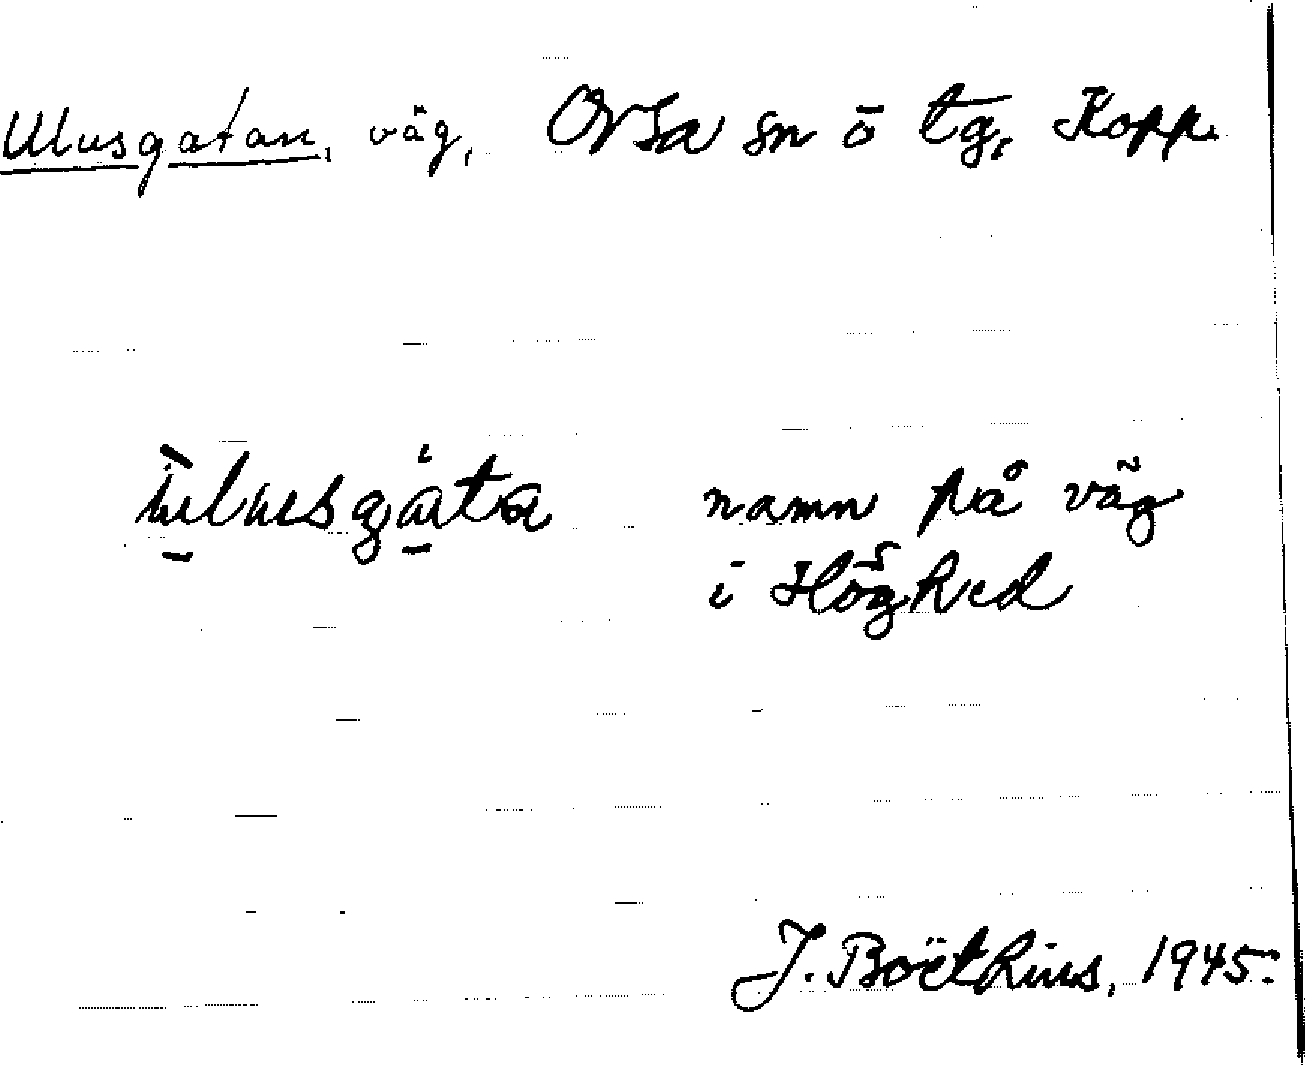 Ulusgatan, väg, Orsa sn o tg, Kopp.
ùlusgáta namn på väg
i Högked
J. Boëthius, 1945.